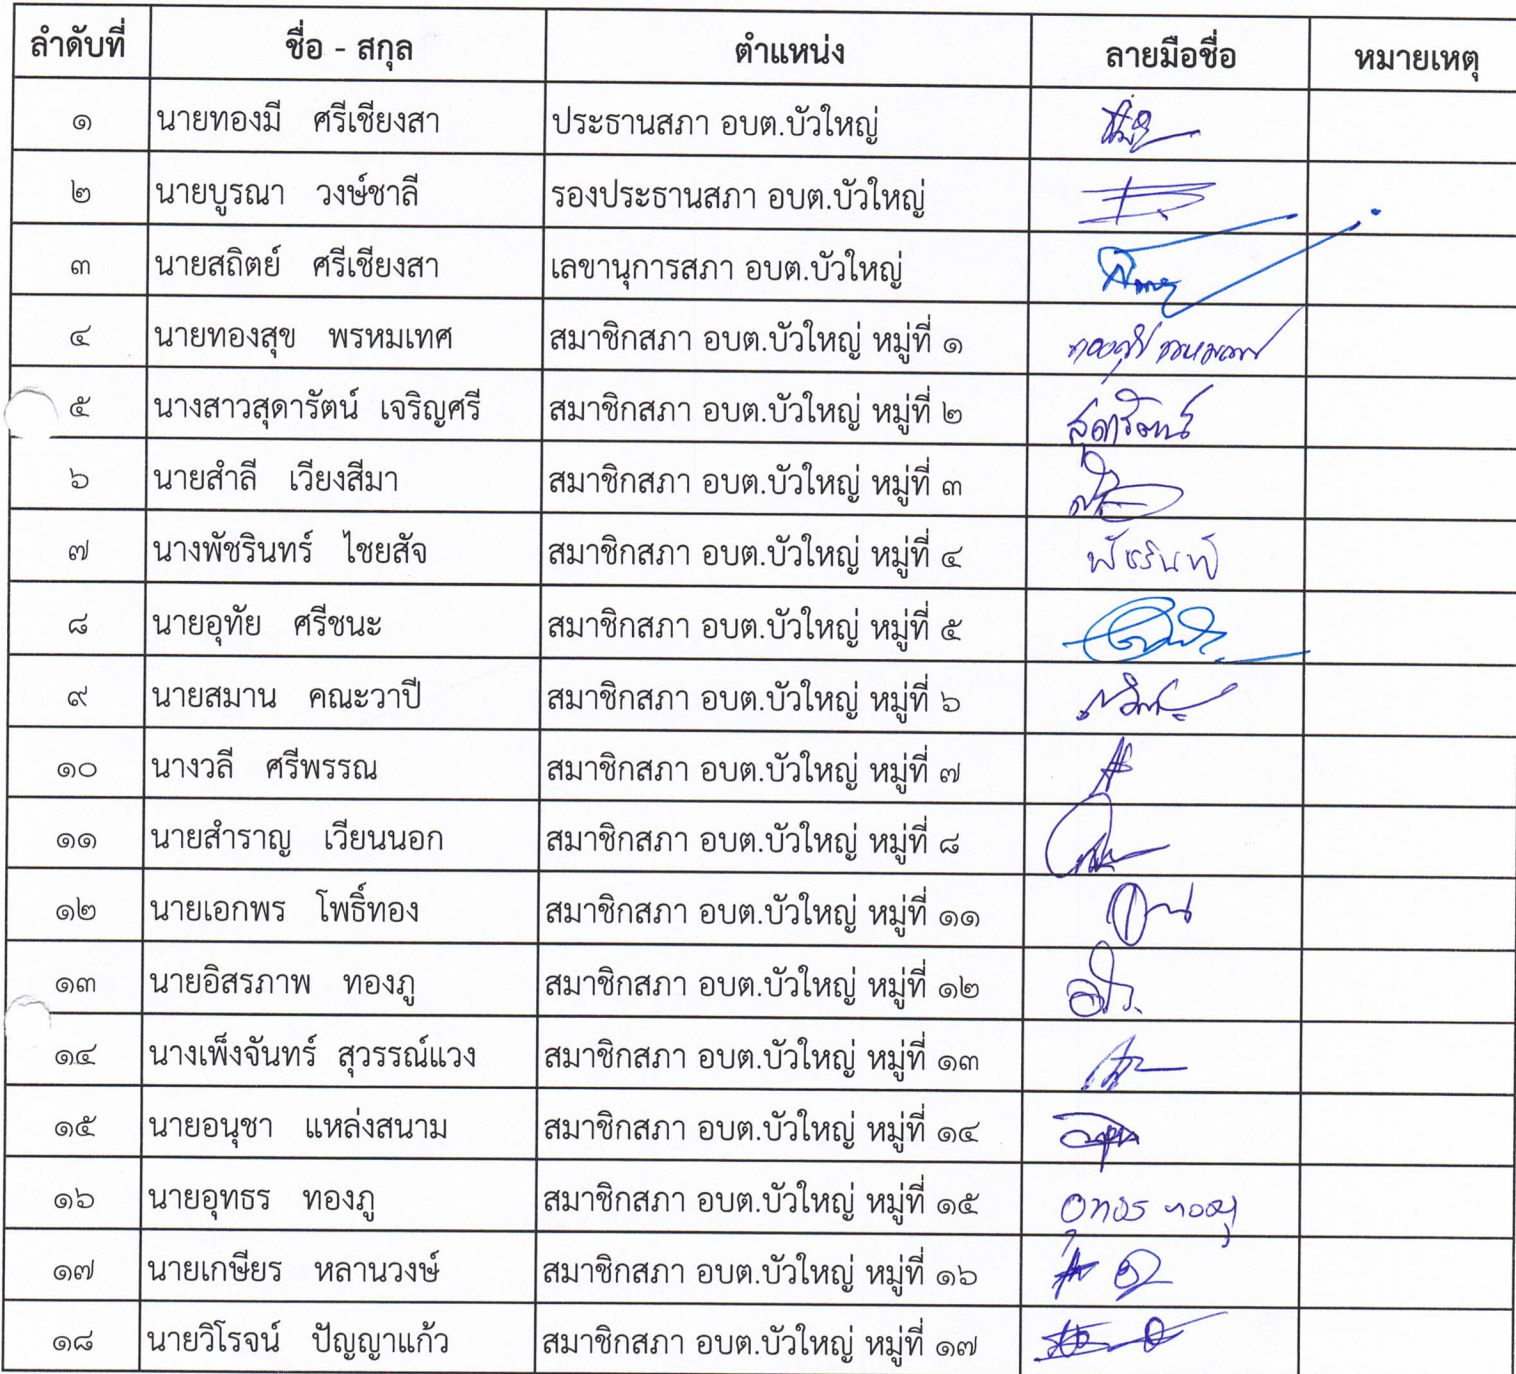 ลำดับที่ ชื่อ - สกุล ตำแหน่ง ลายมือชื่อ หมายเหตุ
๑ นายทองมี ศรีเชียงสา ประธานสภา อบต.บัวใหญ่
๒ นายบูรณา วงษ์ชาลี รองประธานสภา อบต.บัวใหญ่
๓ นายสถิตย์ ศรีเชียงสา เลขานุการสภา อบต.บัวใหญ่
๔ นายทองสุข พรหมเทศ สมาชิกสภา อบต.บัวใหญ่ หมู่ที่ ๑
๕ นางสาวสุดารัตน์ เจริญศรี สมาชิกสภา อบต.บัวใหญ่ หมู่ที่ ๒ สุดารัตน์
๖ นายสำลี เวียงสีมา สมาชิกสภา อบต.บัวใหญ่ หมู่ที่ ๓
๗ นางพัชรินทร์ ไชยสัจ สมาชิกสภา อบต.บัวใหญ่ หมู่ที่ ๔ พัชรินทร์
๘ นายอุทัย ศรีชนะ สมาชิกสภา อบต.บัวใหญ่ หมู่ที่ ๕
๙ นายสมาน คณะวาปี สมาชิกสภา อบต.บัวใหญ่ หมู่ที่ ๖
๑๐ นางวลี ศรีพรรณ สมาชิกสภา อบต.บัวใหญ่ หมู่ที่ ๗
๑๑ นายสำราญ เวียนนอก สมาชิกสภา อบต.บัวใหญ่ หมู่ที่ ๘
๑๒ นายเอกพร โพธิ์ทอง สมาชิกสภา อบต.บัวใหญ่ หมู่ที่ ๑๑
๑๓ นายอิสรภาพ ทองภู สมาชิกสภา อบต.บัวใหญ่ หมู่ที่ ๑๒
๑๔ นางเพ็งจันทร์ สุวรรณ์แวง สมาชิกสภา อบต.บัวใหญ่ หมู่ที่ ๑๓
๑๕ นายอนุชา แหล่งสนาม สมาชิกสภา อบต.บัวใหญ่ หมู่ที่ ๑๔
๑๖ นายอุทธร ทองภู สมาชิกสภา อบต.บัวใหญ่ หมู่ที่ ๑๕ อุทธร ทองภู
๑๗ นายเกษียร หลานวงษ์ สมาชิกสภา อบต.บัวใหญ่ หมู่ที่ ๑๖
๑๘ นายวิโรจน์ ปัญญาแก้ว สมาชิกสภา อบต.บัวใหญ่ หมู่ที่ ๑๗